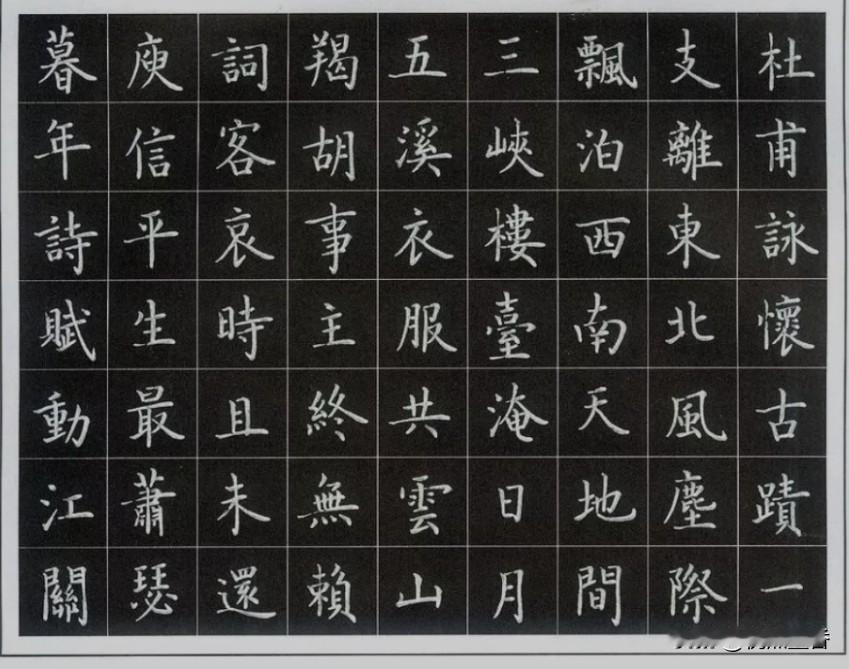 杜甫詠懷古蹟一
支離東北風塵際
飄泊西南天地間
三峽樓臺淹日月
五溪衣服共雲山
羯胡事主終無賴
詞客哀時且未還
庾信平生最蕭瑟
暮年詩賦動江關